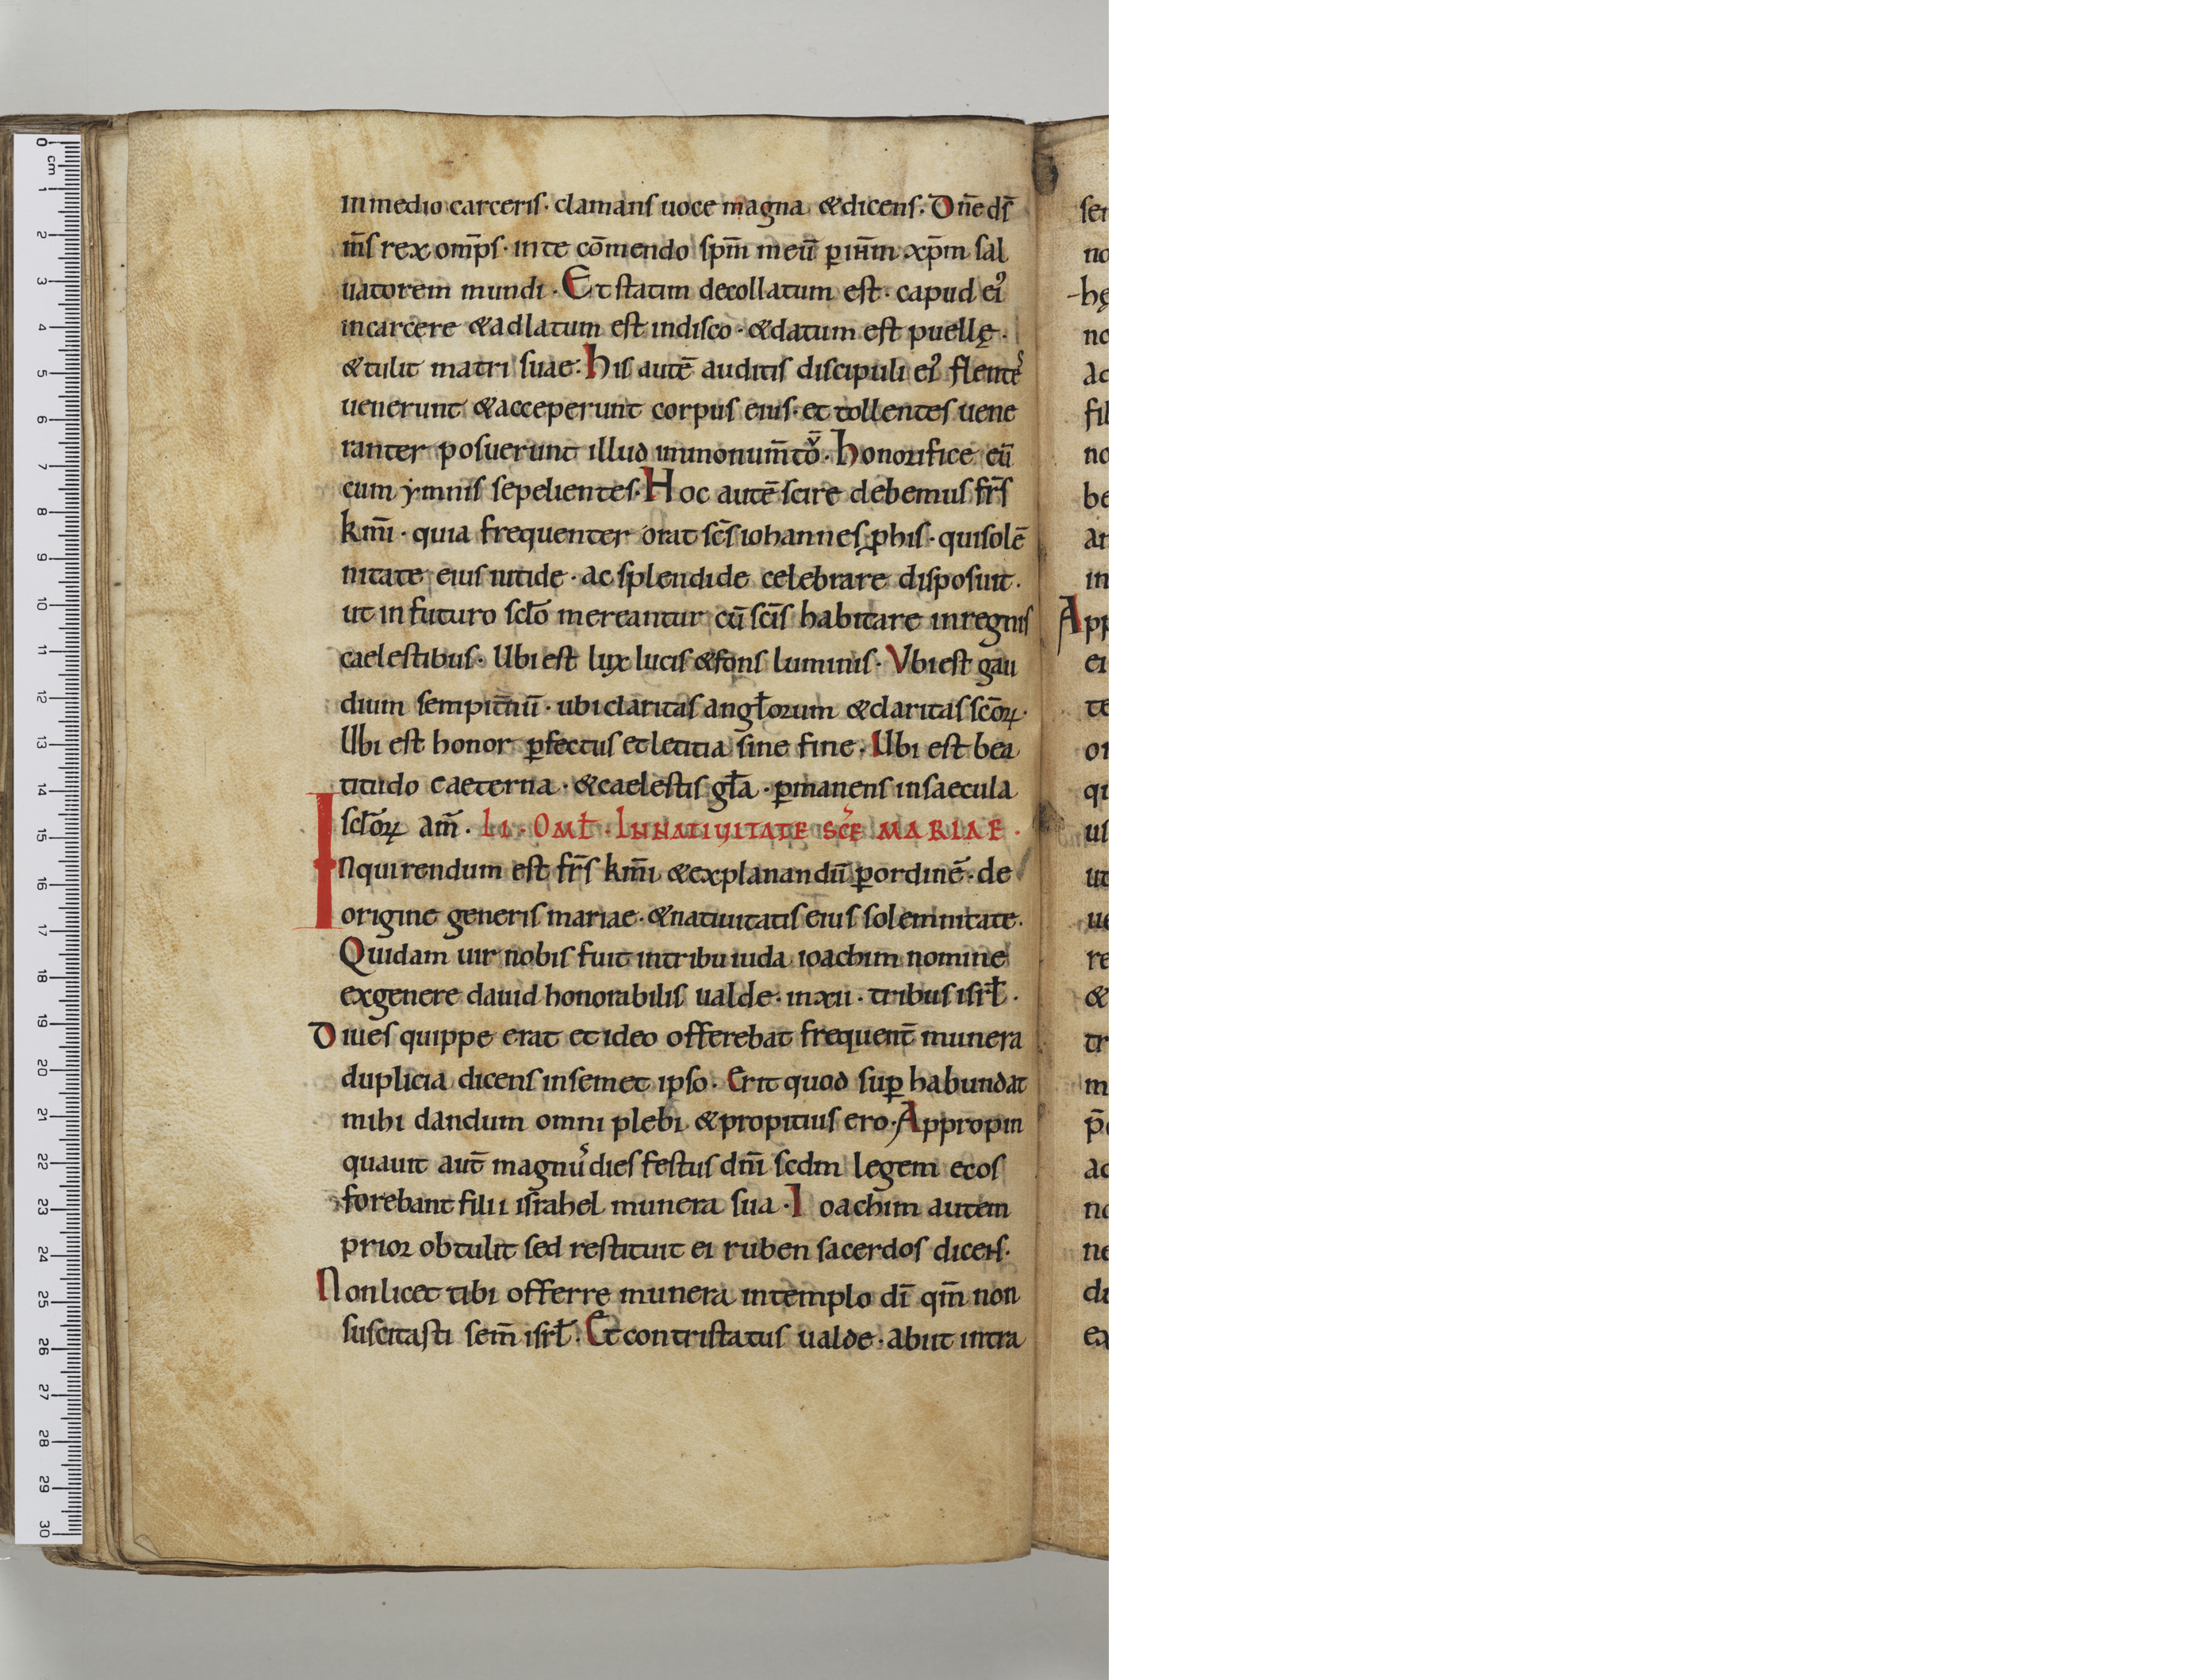 in medio carceris· clamans uoce magna &dicens· Dn̄e ds̄
m̄s rex om̄ps· in te cōmendo spm̄ meū ꝑ ihm̄ xp̄m sal
uatorem mundi· Et statim decollatum est· capud eiꝰ
in carcere &adlatum est indisco· &datum est puellę·
&tulit matri suae· his autē auditis discipuli eiꝰ flentēs
uenerunt &acceperunt corpus eius· et tollentes uene
ranter posuerunt illud in monum̄to· honorifice eū
cum ẏmnis sepelientes· Hoc autē scire debemus fr̄s
km̄i· quia frequenter orat sc̄s iohannes ꝓ his· qui solē
nitate eius nitide· ac splendide celebrare disposuit·
ut in futuro scło mereantur cū sc̄is habitare in regnis
caelestibus· Ubi est lux lucis &fons luminis· Vbi est gau
dium sempit̄nū· ubi claritas angłorum &claritas sc̄oꝝ·
Ubi est honor ꝑfectus et letitia sine fine· Ubi est bea
titudo eaeterna· &caelestis gła· ꝑmanens in saecula
scłoꝝ am̄· LI· OMŁ· IN NATIVITATE SCE MARIAE·
Inquirendum est fr̄s km̄i &explanandū ꝑ ordinē· de
origine generis mariae· &natiuitatis eius solemnitate·
Quidam uir nobis fuit in tribu iuda ioachim nomine
ex genere dauid honorabilis ualde· in xii· tribus isrł·
Diues quippe erat et ideo offerebat frequent̄ munera
duplicia dicens in semet ipso· Erit quod suꝑ habundat
mihi dandum omni plebi &propitius ero· Appropin
quauit aut̄ magnus dies festus dn̄i scdm legem et os
forebant filii isrահel munera sua· Ioachim autem
prior obtulit sed restituit ei ruben sacerdos dicens·
Non licet tibi offerre munera in templo dī qm̄ non
suscitasti sem̄ isrł· Et contristatus ualde· abiit intra